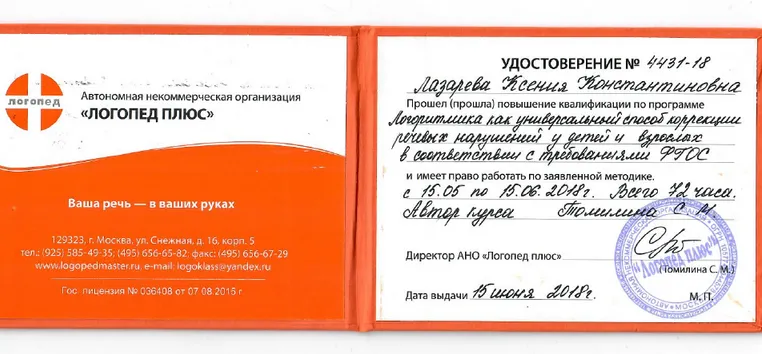 ЛОГОПЕД
Автономная некоммерческая организация
«ЛОГОПЕД ПЛЮС»
Ваша речь — в ваших руках
129323, г. Москва, ул. Снежная, д. 16. корп. 5
тел.: (925) 585-49-35; (495) 656-65-82; факс: (495) 656-67-29
www.logopedmaster.ru, e-mail: logoklass@yandex.ru
Гос. лицензия № 036408 от 07.08.2015 г.
УДОСТОВЕРЕНИЕ № 4431-18
Лазарева Ксения Константиновна
Прошел (прошла) повышение квалификации по программе
Логоритмика как универсальный способ коррекции
речевых нарушений у детей и взрослых
в соответствии с требованиями ФГОС
и имеет право работать по заявленной методике.
с 15.05 по 15.06.2018г. Всего 72 часа.
Автор курса Томилина С. М.
Директор АНО «Логопед плюс»
"ЛОГОПЕД ПЛЮС"
(Томилина С. М.)
Дата выдачи 15 июня 2018г.
М. П.